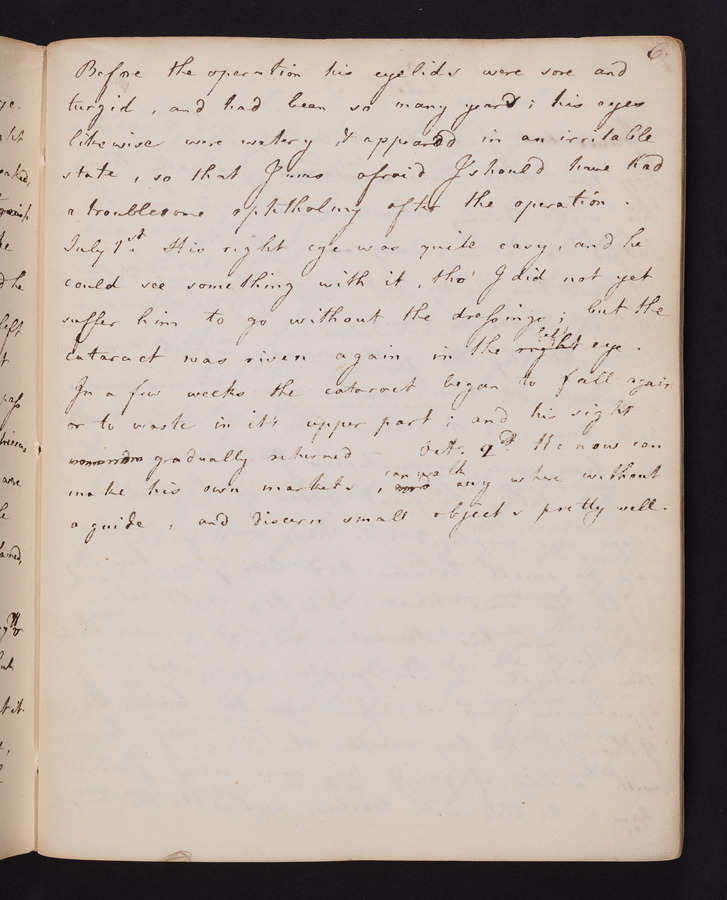 6.
Before the operation his eyelids were sore and
turgid, and had been so many years; his eyes
likewise were watery & appeared in an irritable
state, so that I was afraid I should have had
a troublesome ophtholmy after the operation.
July 1st. His right eye was quite easy, and he
could see something with it, tho' I did not yet
suffer him to go without the dressings; but the
cataract was risen again in the right left eye.
In a few weeks the cataract began to fall again
or to waste in it's upper part; and his sight
gradually returned — Octr. 9th He now can
make his own markets, can walk any where without
a guide, and discern small objects pretty well.